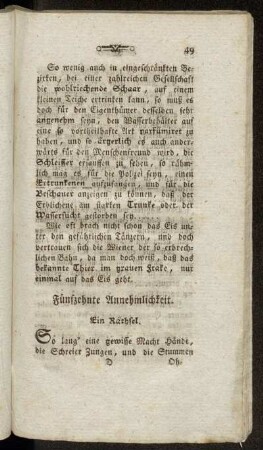 49
So wenig auch in eingeschränkten Be-
zirken, bei einer zahlreichen Gesellschaft
die wohlriechende Schaar, auf einem
kleinen Teiche ertrinken kann, so muß es
doch für den Eigenthümer desselben sehr
angenehm seyn, den Wasserbehälter auf
eine so vortheilhafte Art parfümirt zu
haben, und so ärgerlich es auch ander-
wärts für den Menschenfreund wird, die
Schleifer ersauffen zu sehen, so rühm-
lich mag es für die Polizei seyn, einen
Ertrunkenen aufzufangen, und für die
Beschauer anzeigen zu können, daß der
Erblichene am starken Trunke oder der
Wassersucht gestorben sey.
Wie oft brach nicht schon das Eis un-
ter den gefährlichen Tänzern, und doch
vertrauen sich die Wiener der so zerbrech-
lichen Bahn, da man doch weiß, daß das
bekannte Thier im grauen Frake, nur
einmal auf das Eis geht.
Fünfzehnte Annehmlichkeit.
Ein Räthsel.
So lang' eine gewisse Macht Hände,
die Schreier Zungen, und die Stummen
D
Oh-